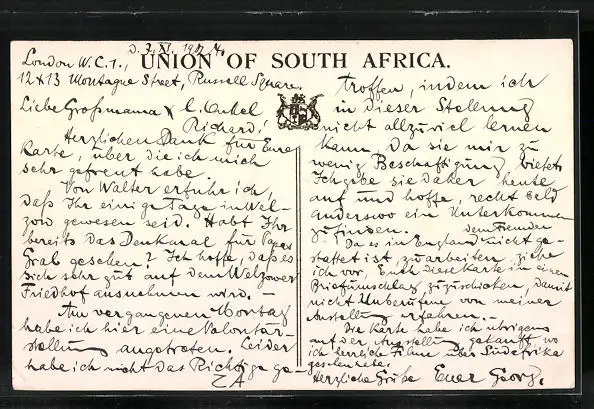 D. 7. XI. 192
London W.C.1.,
12 & 13 Montague Street, Russell Square.
UNION OF SOUTH AFRICA.
Liebe Großmama & l. Onkel
Richard!
Herzlichen Dank für Eure
Karte, über die ich mich
sehr gefreut habe.
Von Walter erfuhr ich,
daß Ihr einige Tage in Wel-
zow gewesen seid. Habt Ihr
bereits das Denkmal für Papas
Grab gesehen? Ich hoffe, daß es
sich sehr gut auf dem Welzower
Friedhof ausnehmen wird. –
Am vergangenen Montag
habe ich hier eine Volontär-
stellung angetreten. Leider
habe ich nicht das Richtige ge-
troffen, indem ich
in dieser Stellung
nicht allzuviel lernen
kann, da sie mir zu
wenig Beschäftigung bietet.
Ich gebe sie daher heute
auf und hoffe, recht bald
anderswo ein Unterkommen
zu finden.
Da es in England dem Fremden nicht ge-
stattet ist, zu arbeiten, ziehe
ich vor, Euch diese Karte in einem
Briefumschlag zuzuschicken, damit
nicht Unberufene von meiner
Anstellung erfahren. –
Die Karte habe ich übrigens
auf der Ausstellung gekauft, wo
ich herrliche Filme über Südafrika
gesehen habe.
Herzliche Grüße Euer Georg.